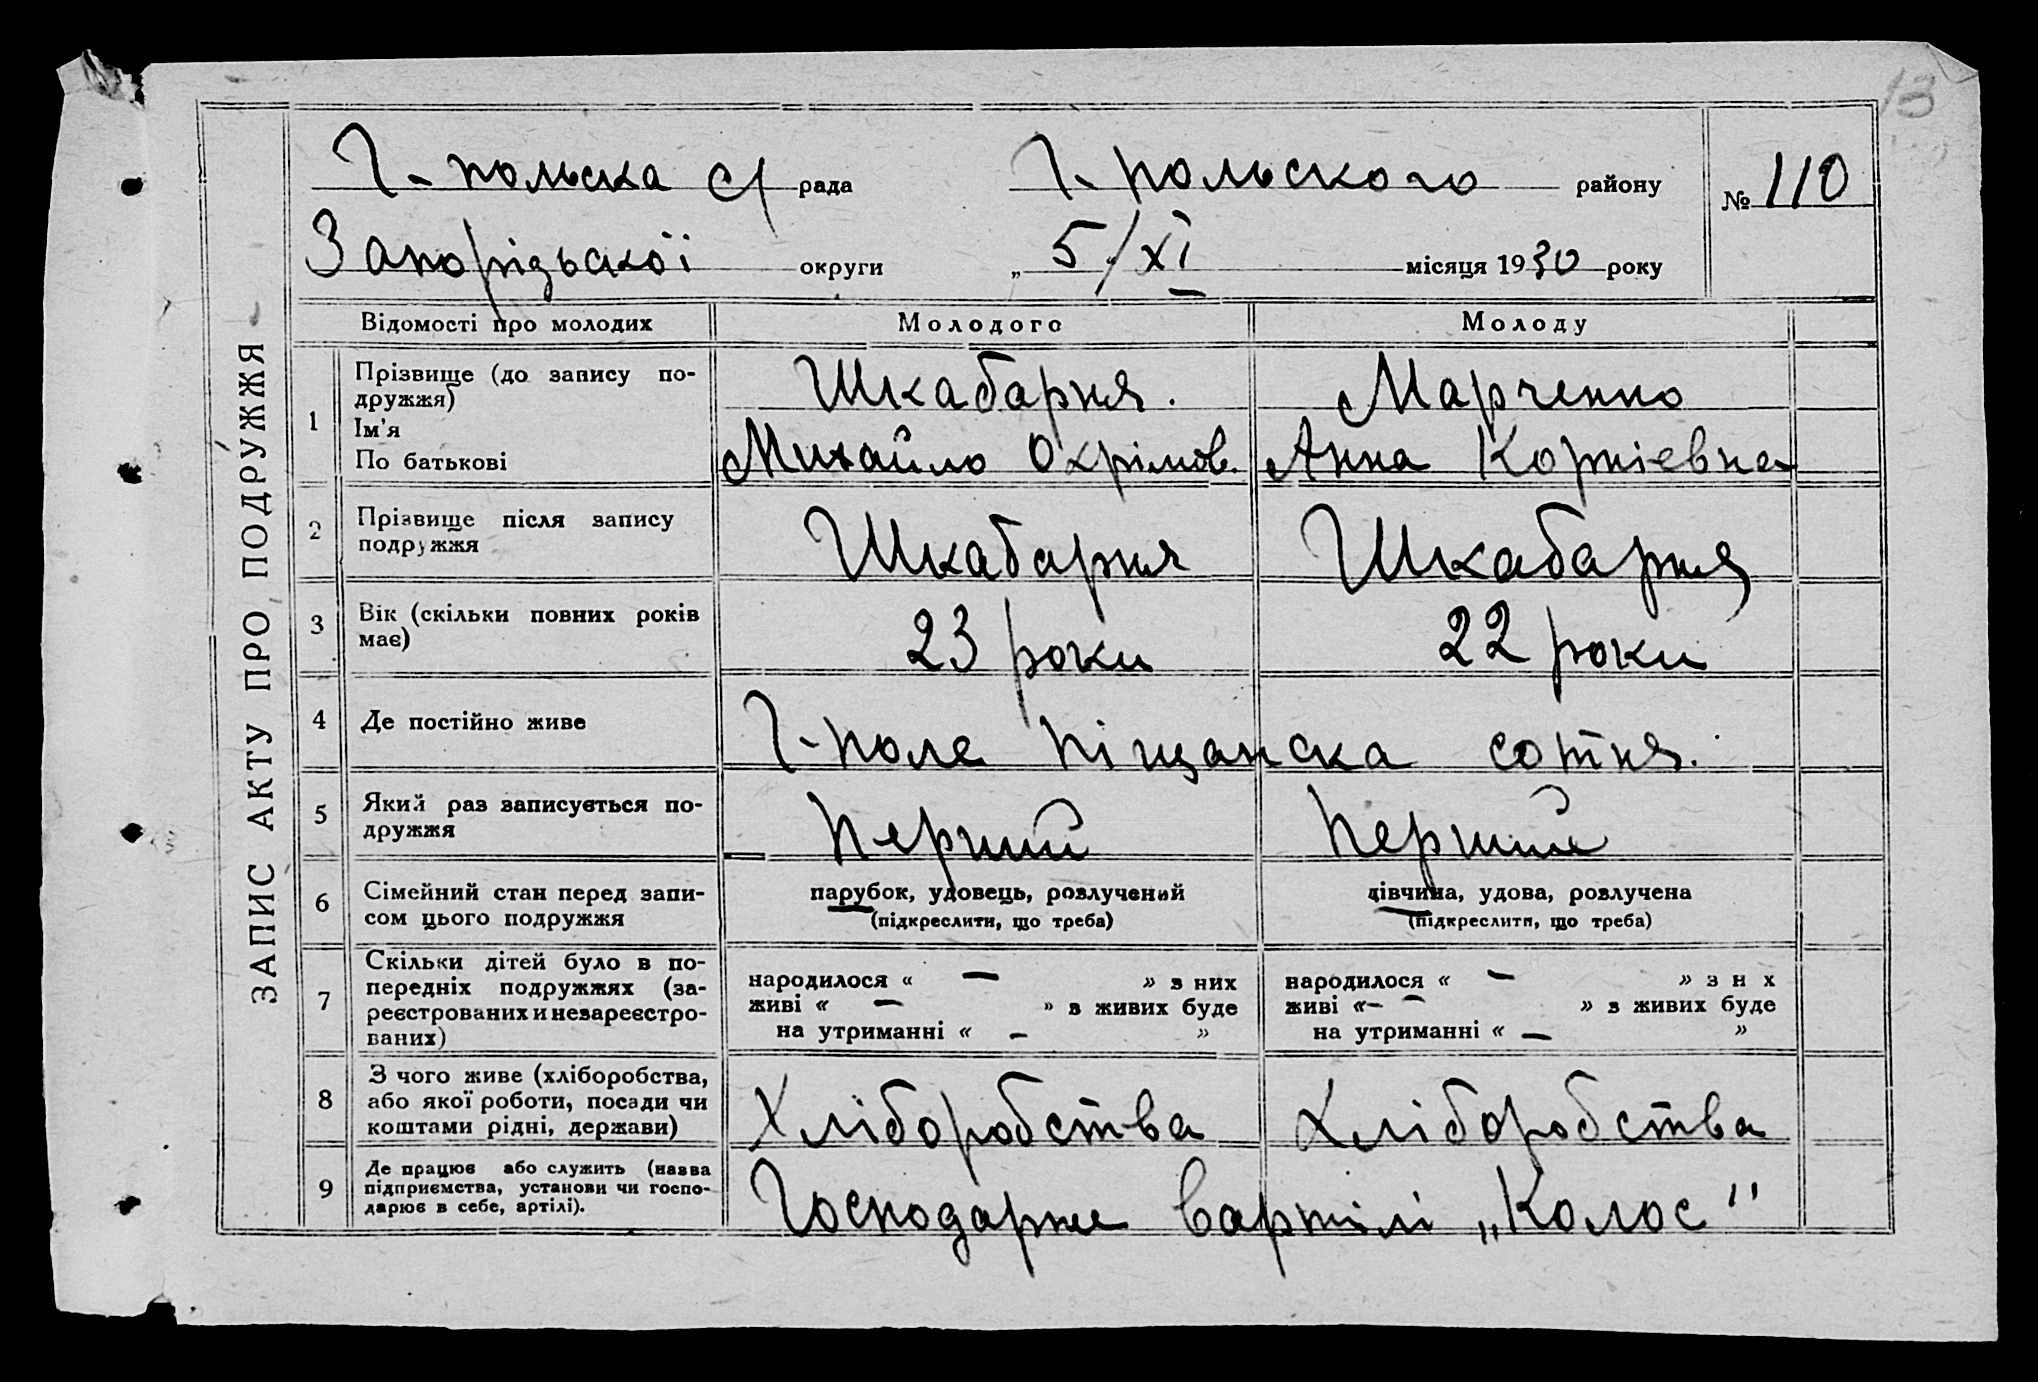 13
ЗАПИС АКТУ ПРО ПОДРУЖЖЯ
Г-польска с/ рада Г-польского району № 110
Запорізської округи „ 5/XI “ місяця 1930 року
Відомості про молодих Молодого Молоду
1 Прізвище (до запису по-
дружжя) Шкабарня. Марченко
Ім'я
По батькові Михайло Охрімов. Анна Корнієвна
2 Прізвище після запису
подружжя Шкабарня Шкабарня
3 Вік (скільки повних років
має) 23 роки 22 роки
4 Де постійно живе Г-поле Піщанска сотня.
5 Який раз записується по-
дружжя Перший Перший
6 Сімейний стан перед запи-
сом цього подружжя
парубок, удовець, розлучений
(підкреслити, що треба)
дівчина, удова, розлучена
(підкреслити, що треба)
7 Скільки дітей було в по-
передніх подружжях (за-
реєстрованих и незареєстро-
ваних)
народилося « — » з них
живі « — » в живих буде
на утриманні « — »
народилося « — » з н х
живі « — » з живих буде
на утриманні « — »
8 З чого живе (хліборобства,
або якої роботи, посади чи
коштами рідні, держави) Хліборобства Хліборобства
9 Де працює або служить (назва
підприємства, установи чи госпо-
дарює в себе, артілі). Господарює в артілі „Колос"